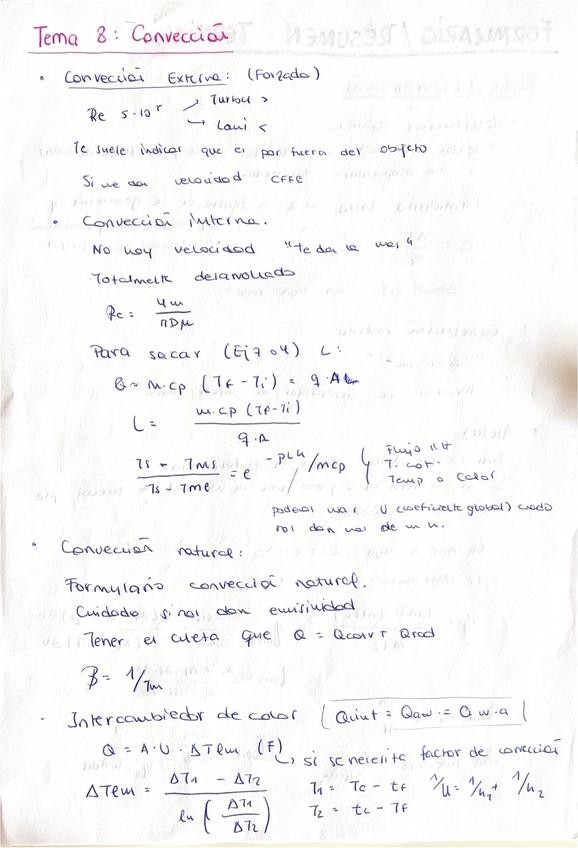 Tema 8: Convección
· Convección Externa: (Forzada)
Re 5·10⁵ → Turbul >
→ Lami <
Te suele indicar que es por fuera del objeto
Si me dan velocidad CFFE
· Convección interna.
No hay velocidad "te da la mas"
Totalmente desarrollado
Re = 4m / πDμ
Para sacar (Ej 7 o 4) L:
Q = m·cp (Tf - Ti) = q·A
L = m·cp (Tf-Ti) / q·A
Ts - Tms / Ts - Tme = e^-PLh/mcp
Flujo
T. cot.
Temp o Calor
podemos usar U (coeficiente global) cuando
nos dan mas de un h.
· Convección natural:
Formulario convección natural.
Cuidado si nos dan emisividad
Tener en cuenta que Q = Qconv + Qrad
β = 1/Tm
· Intercambiador de calor (Qint = Qaw = Q w-a)
Q = A·U·ΔTlm (F) → si se necesita factor de corrección
ΔTlm = ΔT1 - ΔT2 / ln (ΔT1 / ΔT2)
T1 = Tc - tf 1/U = 1/h1 + 1/h2
T2 = tc - Tf